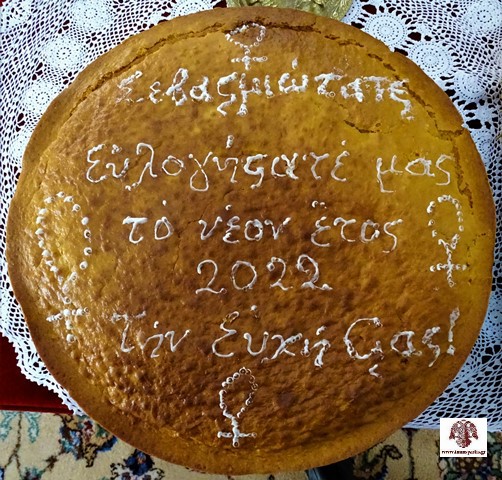 Σεβασμιώτατε
εὐλογήσατέ μας
τὸ νέον ἔτος
2022
Τὴν εὐχή σας!